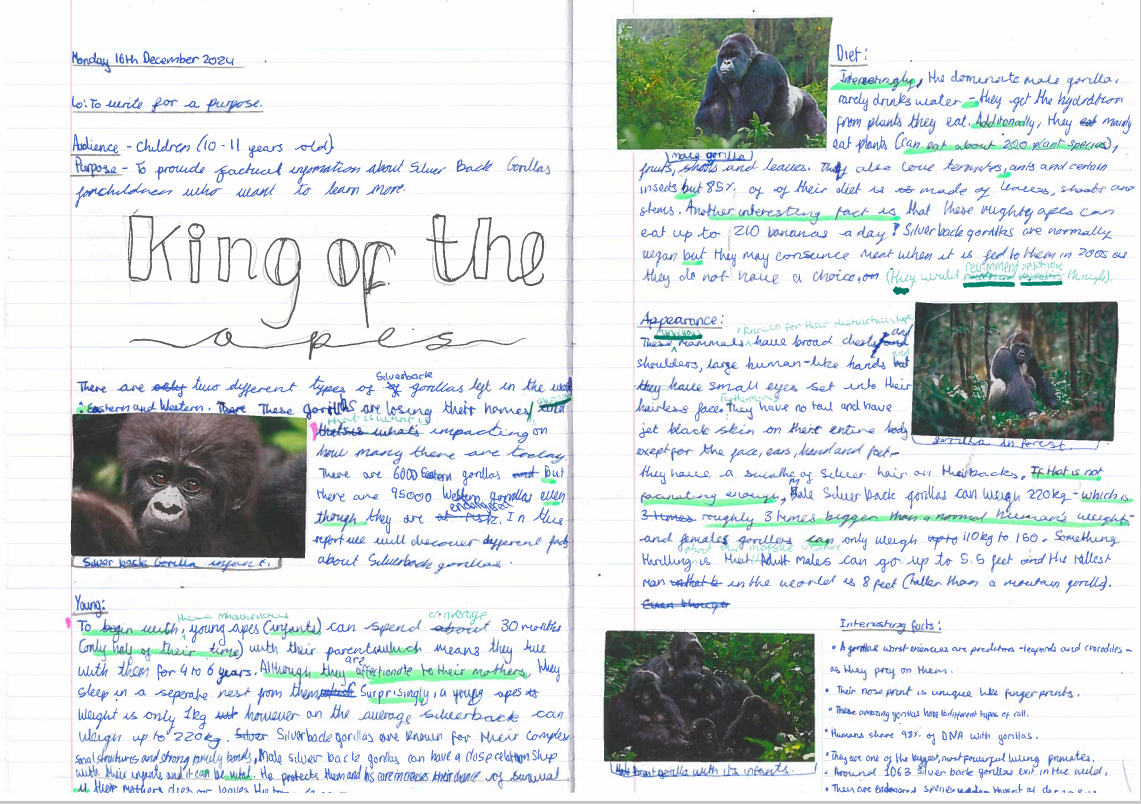 Monday 16th December 2024
Lo: To write for a purpose.
Audience - Children (10 - 11 years old)
Purpose - To provide factual infomation about Silver Back Gorillas
for children who want to learn more.
King of the
apes
There are only two different types of Silverback gorillas left in the
: Eastern and Western. There These gorillas are losing their homes and
that is what is
that is whats impacting on
how many there are today.
There are 6000 Eastern gorillas and but
there are 95000 Western gorillas even
though they are endangered. In this
report we will discover different facts
about Silverback gorillas.
Silver back Gorilla infant.
Young:
To begin with, these young apes (infants) can spend about on average 30 months
(only half of their time) with their parents which means they live
with them for 4 to 6 years. Although they are affectionate to their mothers, they
sleep in a seperate nest from them. Surprisingly, a young apes
weight is only 1kg but however on the average silverback can
weigh up to 220kg. Silver Silverback gorillas are known for their complex
social structures and strong family bonds. Male silver back gorillas can have a close relationship
with their infants and it can be vital. He protects them and his care increases their chance of survival
if their mothers dies or leaves
Diet:
Interestingly, the dominate male gorilla,
rarely drinks water - they get the hydration
from plants they eat. Additionally, they eat mainly
eat plants (can eat about 200 plant species),
(male gorilla)
fruits, shoots and leaves. They also love termites, ants and certain
insects but 85% of of their diet is made of leaves, shoots and
stems. Another interesting fact is that these mighty apes can
eat up to 210 bananas a day! Silverback gorillas are normally
vegan but they may consume meat when it is fed to them in zoos as
they do not have a choice (they would though).
Appearance:
, known for their
These mammals have broad chests and
shoulders, large human-like hands but and
they have small eyes set into their
hairless face. Furthermore They have no tail and have
jet black skin on there entire body
exept for the face, ears, hand and feet -
gorilla in forest
they have a saddle of silver hair on their backs. If that is not
facinating enough, male Silver back gorillas can weigh 220kg - which is
3 times roughly 3 times bigger than a normal human's weight -
and females gorillas can only weigh up to 110kg to 160. Something
thrilling about this is that Adult males can go up to 5.5 feet and the tallest
man in the world is 8 feet (taller than a mountain gorilla).
Even though
gorilla with its infants.
Interesting facts:
• A gorillas worst enemies are predators - leopards and crocodiles -
as they prey on them.
• Their nose print is unique like finger prints.
• These amazing gorillas have different types of call.
• Humans share 93% of DNA with gorillas.
• They are one of the biggest, most powerful living primates.
• Around 1063 silver back gorillas exit in the wild.
• They are Endangered species